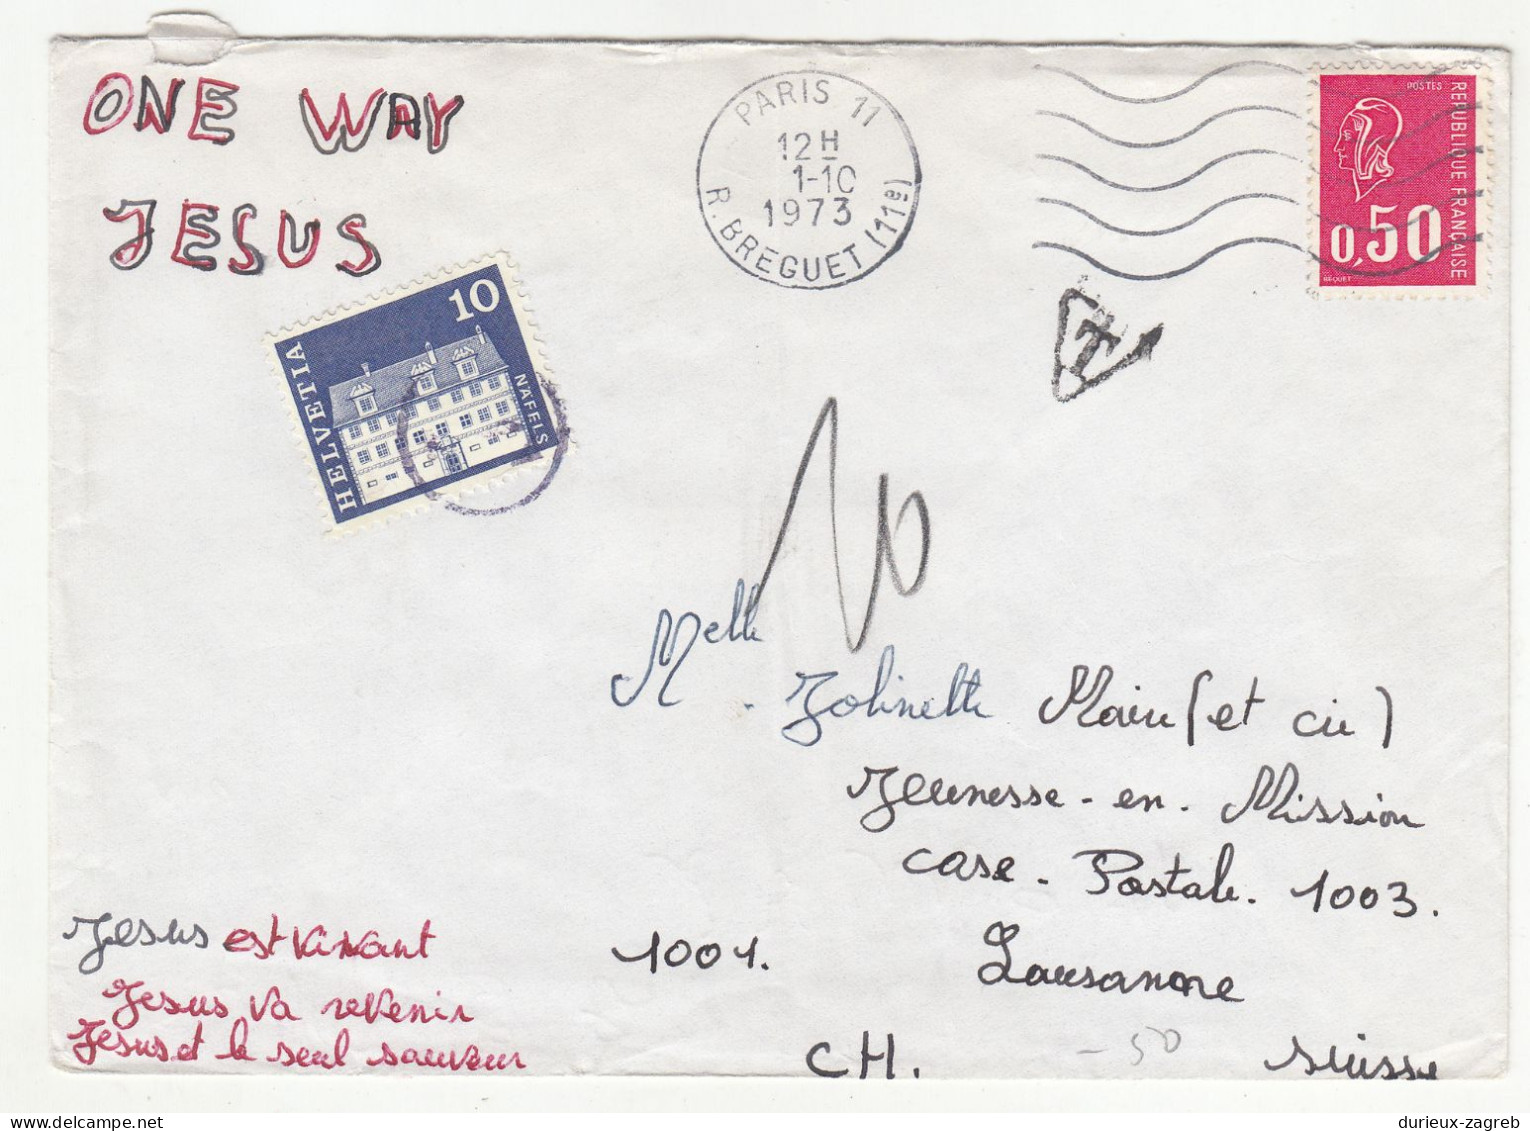 ONE WAY
JESUS
PARIS 11
12H
1-10
1973
R. BREGUET (11e)
POSTES
REPUBLIQUE FRANÇAISE
0,50
BEQUET
T
HELVETIA
10
NÄFELS
10
Melle. Jolinette Maire (et cie)
Jeunesse-en-Mission
case-Postale. 1003.
1001. Lausanne
CH. Suisse
-50
Jesus est vivant
Jesus va revenir
Jesus et le seul sauveur
durieux-zagreb